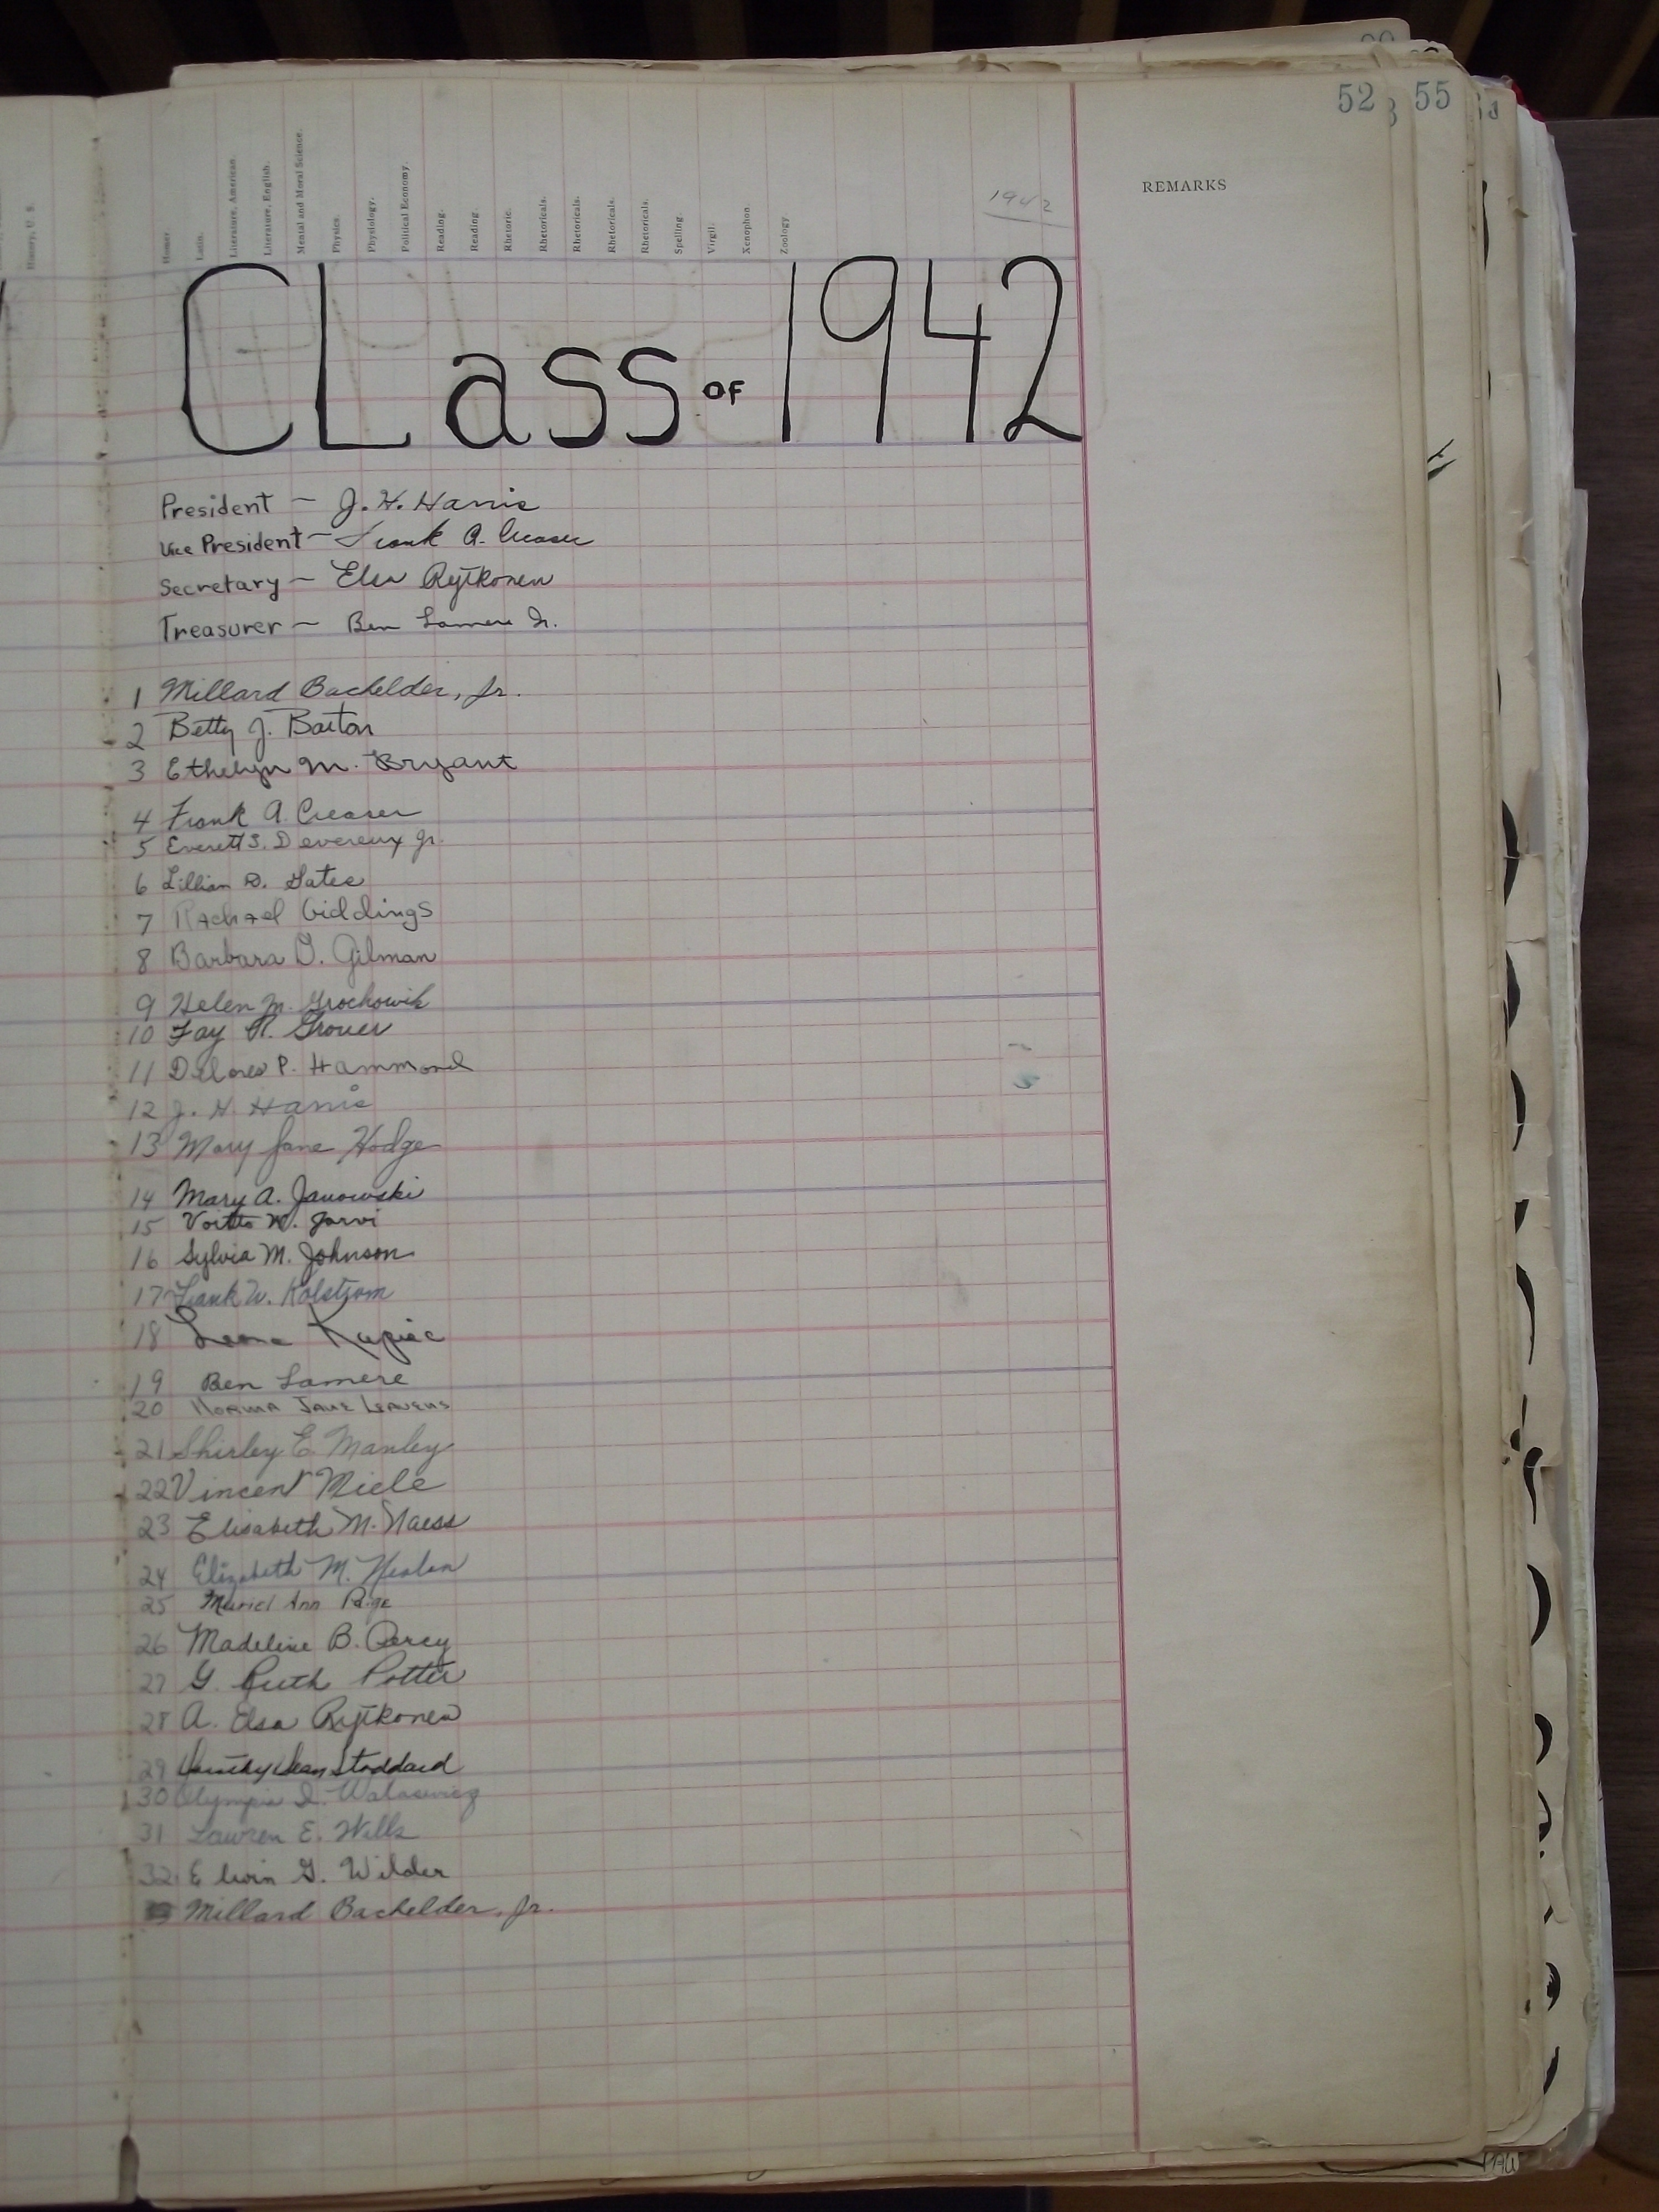 52 55
REMARKS
1942
History, U. S.
Homer.
Latin.
Literature, American.
Literature, English.
Mental and Moral Science.
Physics.
Physiology.
Political Economy.
Reading.
Reading.
Rhetoric.
Rhetoricals.
Rhetoricals.
Rhetoricals.
Rhetoricals.
Spelling.
Virgil.
Xenophon.
Zoology.
CLass OF 1942
President - J. H. Harris
Vice President - Frank A. Creaser
Secretary - Elsa Rytkonen
Treasurer - Ben Lamere Jr.
1 Millard Bachelder, Jr.
2 Betty J. Barton
3 Ethelyn M. Bryant
4 Frank A. Creaser
5 Everett S. Devereux Jr.
6 Lillian D. Gates
7 Rachael Giddings
8 Barbara D. Gilman
9 Helen M. Grochowik
10 Fay R. Grover
11 Delores P. Hammond
12 J. H. Harris
13 Mary Jane Hodge
14 Mary A. Janowski
15 Voitto W. Jarvi
16 Sylvia M. Johnson
17 Frank W. Kolstrom
18 Kupiec
19 Ben Lamere
20 Norma Jane Leavens
21 Shirley E. Manley
22 Vincent Miele
23 Elisabeth M. Naess
24 Elizabeth M.
25 Muriel Ann Paige
26 Madeline B. Percy
27 G. Ruth Potter
28 A. Elsa Rytkonen
29 Dorothy Jean Stoddard
30 Olympia I. Walasewicz
31 Lawren E. Wells
32 Elwin G. Wilder
Millard Bachelder, Jr.